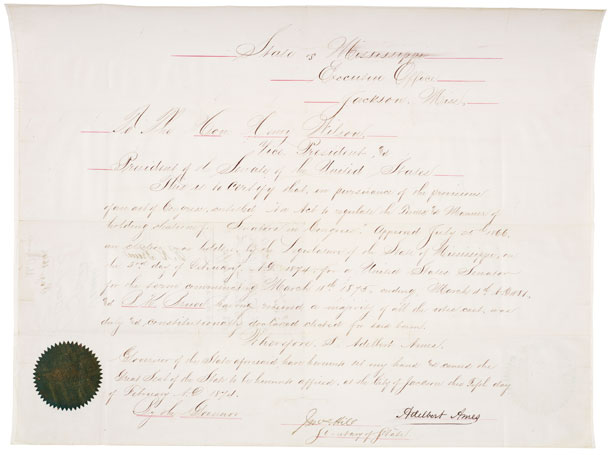 State of Mississippi
Executive Office
Jackson, Miss,
To The Hon Henry Wilson,
Vice President &
President of the Senate of the United States
This is to certify that, in pursuance of the provisions
of an act of Congress, entitled "An Act to regulate the Times & Manner of
holding elections for Senators in Congress." Approved July 25 1866,
an election was holden by the Legislature of the State of Mississippi, on
the day of February A.D. 1874, for a United States Senator
for the term commencing March 4th 1875, ending March 4th 1881,
& B. K. Bruce having received a majority of all the votes cast, was
duly & constitutionally declared elected for said term.
Wherefore I, Adelbert Ames,
Governor of the State aforesaid have hereunto set my hand & caused the
Great Seal of the State to be hereunto affixed, at the City of Jackson this Fifth day
of February A.D. 1874.
By the Governor
Adelbert Ames
Secretary of State